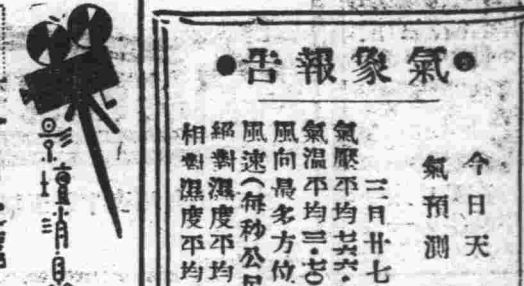 氣象報告
今日天
氣預測
三月廿七
氣壓平均七六六·
氣温平均三·七〇
風向最多方位
風速(每秒公尺
絕對濕度平均
相對濕度平均